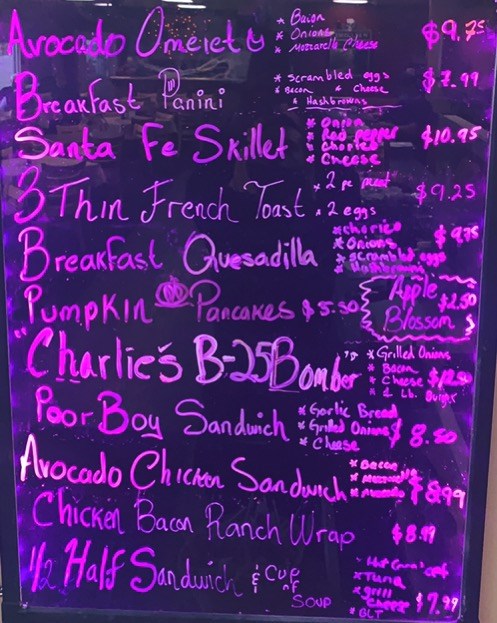 Avocado Omelet * Bacon * Onions * Mozzarella Cheese $9.75
Breakfast Panini * Scrambled eggs * Bacon * Cheese * Hashbrowns $7.99
Santa Fe Skillet * Onion * Red pepper * Chorizo * Cheese $10.95
3 Thin French Toast * 2 pc meat * 2 eggs $9.25
Breakfast Quesadilla * Chorizo * Onions * Scrambled eggs * Hashbrowns $9.75
Pumpkin Pancakes $5.50 Apple Blossom $2.50
"Charlie's B-25 Bomber" * Grilled Onions * Bacon * Cheese * 1 Lb. Burger
Poor Boy Sandwich * Garlic Bread * Grilled Onions * Cheese $8.50
Avocado Chicken Sandwich * Bacon * Mozzarella * Avocado $8.99
Chicken Bacon Ranch Wrap $8.99
1/2 Half Sandwich & Cup of Soup * Tuna * grill cheese * BLT $7.99